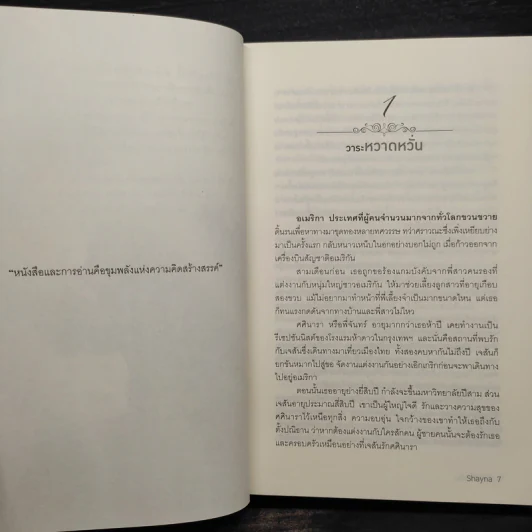 “หนังสือและการอ่านคือขุมพลังแห่งความคิดสร้างสรรค์”
1
วาระหวาดหวั่น
อเมริกา ประเทศที่ผู้คนจำนวนมากจากทั่วโลกขวนขวาย
ดิ้นรนเพื่อหาทางมาขุดทองหลายทศวรรษ ทว่าศราวณะซึ่งเพิ่งเหยียบย่าง
มาเป็นครั้งแรก กลับหนาวเหน็บในอกอย่างบอกไม่ถูก เมื่อก้าวออกจาก
เครื่องบินสัญชาติอเมริกัน
สามเดือนก่อน เธอถูกขอร้องแกมบังคับจากพี่สาวคนรองที่
แต่งงานกับหนุ่มใหญ่ชาวอเมริกัน ให้มาช่วยเลี้ยงลูกสาวที่อายุเกือบ
สองขวบ แม้ไม่อยากมาทำหน้าที่พี่เลี้ยงจำเป็นมากขนาดไหน แต่เธอ
ก็ทนแรงกดดันจากทางบ้านและพี่สาวไม่ไหว
ศศินารา หรือพี่จันทร์ อายุมากกว่าเธอห้าปี เคยทำงานเป็น
รีเซปชันนิสต์ของโรงแรมห้าดาวในกรุงเทพฯ และนั่นคือสถานที่พบรัก
กับเจสันซึ่งเดินทางมาเที่ยวเมืองไทย ทั้งสองคบหากันไม่ถึงปี เจสันก็
ยกขันหมากไปสู่ขอ จัดงานแต่งงานกันอย่างเอิกเกริกก่อนจะพาเดินทาง
ไปอยู่อเมริกา
ตอนนั้นเธออายุย่างยี่สิบปี กำลังจะขึ้นมหาวิทยาลัยปีสาม ส่วน
เจสันอายุประมาณสี่สิบปี เขาเป็นผู้ใหญ่ใจดี รักและวางความสุขของ
ศศินาราไว้เหนือทุกสิ่ง ความอบอุ่น ใจกว้างของเขาทำให้เธอถึงกับ
ตั้งปณิธาน ว่าหากต้องแต่งงานกับใครสักคน ผู้ชายคนนั้นจะต้องรักเธอ
และครอบครัวเหมือนอย่างที่เจสันรักศศินารา
Shayna 7